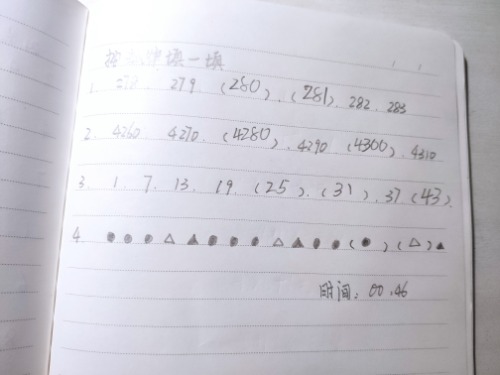 找规律填一填
1. 278. 279. (280). (281). 282. 283
2. 4260. 4270. (4280). 4290. (4300). 4310
3. 1. 7. 13. 19. (25). (31). 37 (43).
4. ●●●△▲●●●△▲●●(●).(△)▲
时间：00.46